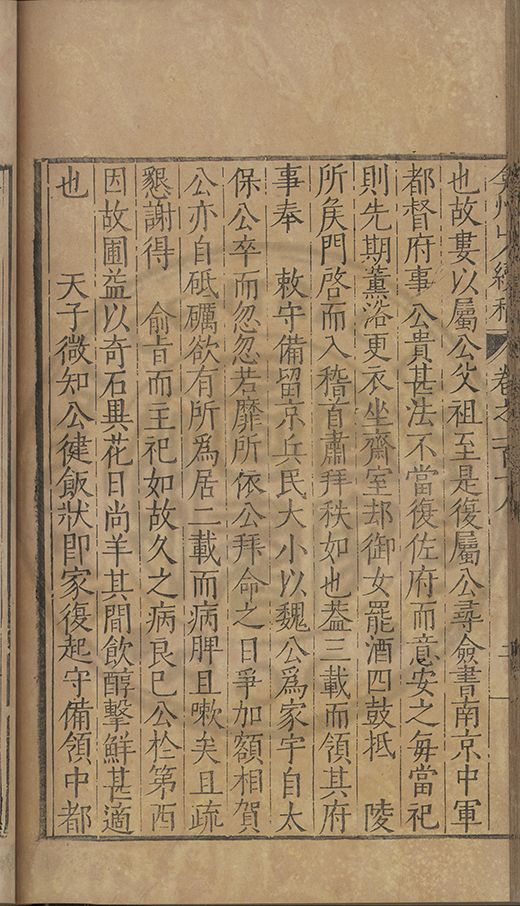 弇州山人續稿　卷之一百十八
也故婁以屬公父祖至是復屬公尋僉書南京中軍
都督府事　公貴甚法不當復佐府而意安之每當祀
則先期薰浴更衣坐齋室却御女罷酒四鼓抵　陵
所矦門啓而入稽首肅拜秩如也葢三載而領其府
事奉　敕守備留京兵民大小以魏公爲家宇自太
保公卒而忽忽若靡所依公拜命之日爭加額相賀
公亦自砥礪欲有所爲居二載而病脾且嗽矣且疏
懇謝得　俞旨而王祀如故久之病良已公於第西
因故圃益以奇石異花日尚羊其間飲醇擊鮮甚適
也　　天子微知公健飯狀即家復起守備領中都